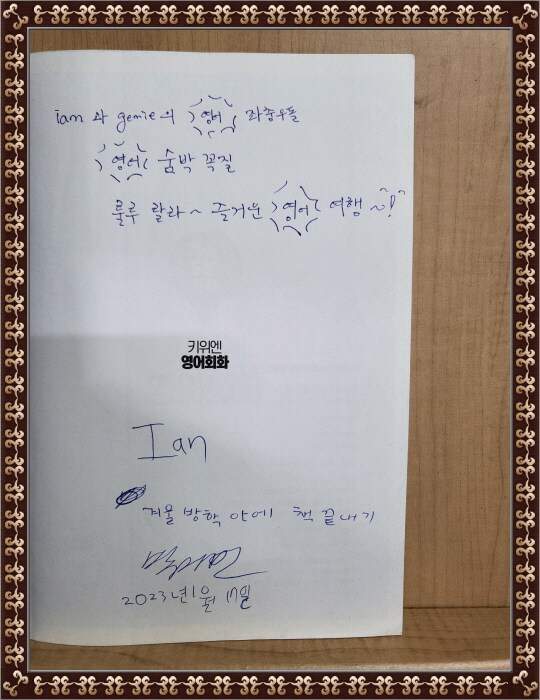 ian과 genie의 영어 좌충우돌
영어 숨박 꼭질
룰루 랄라~ 즐거운 영어 여행~!
키위엔
영어회화
Ian
겨울 방학 안에 책 끝내기
2023년 1월 17일